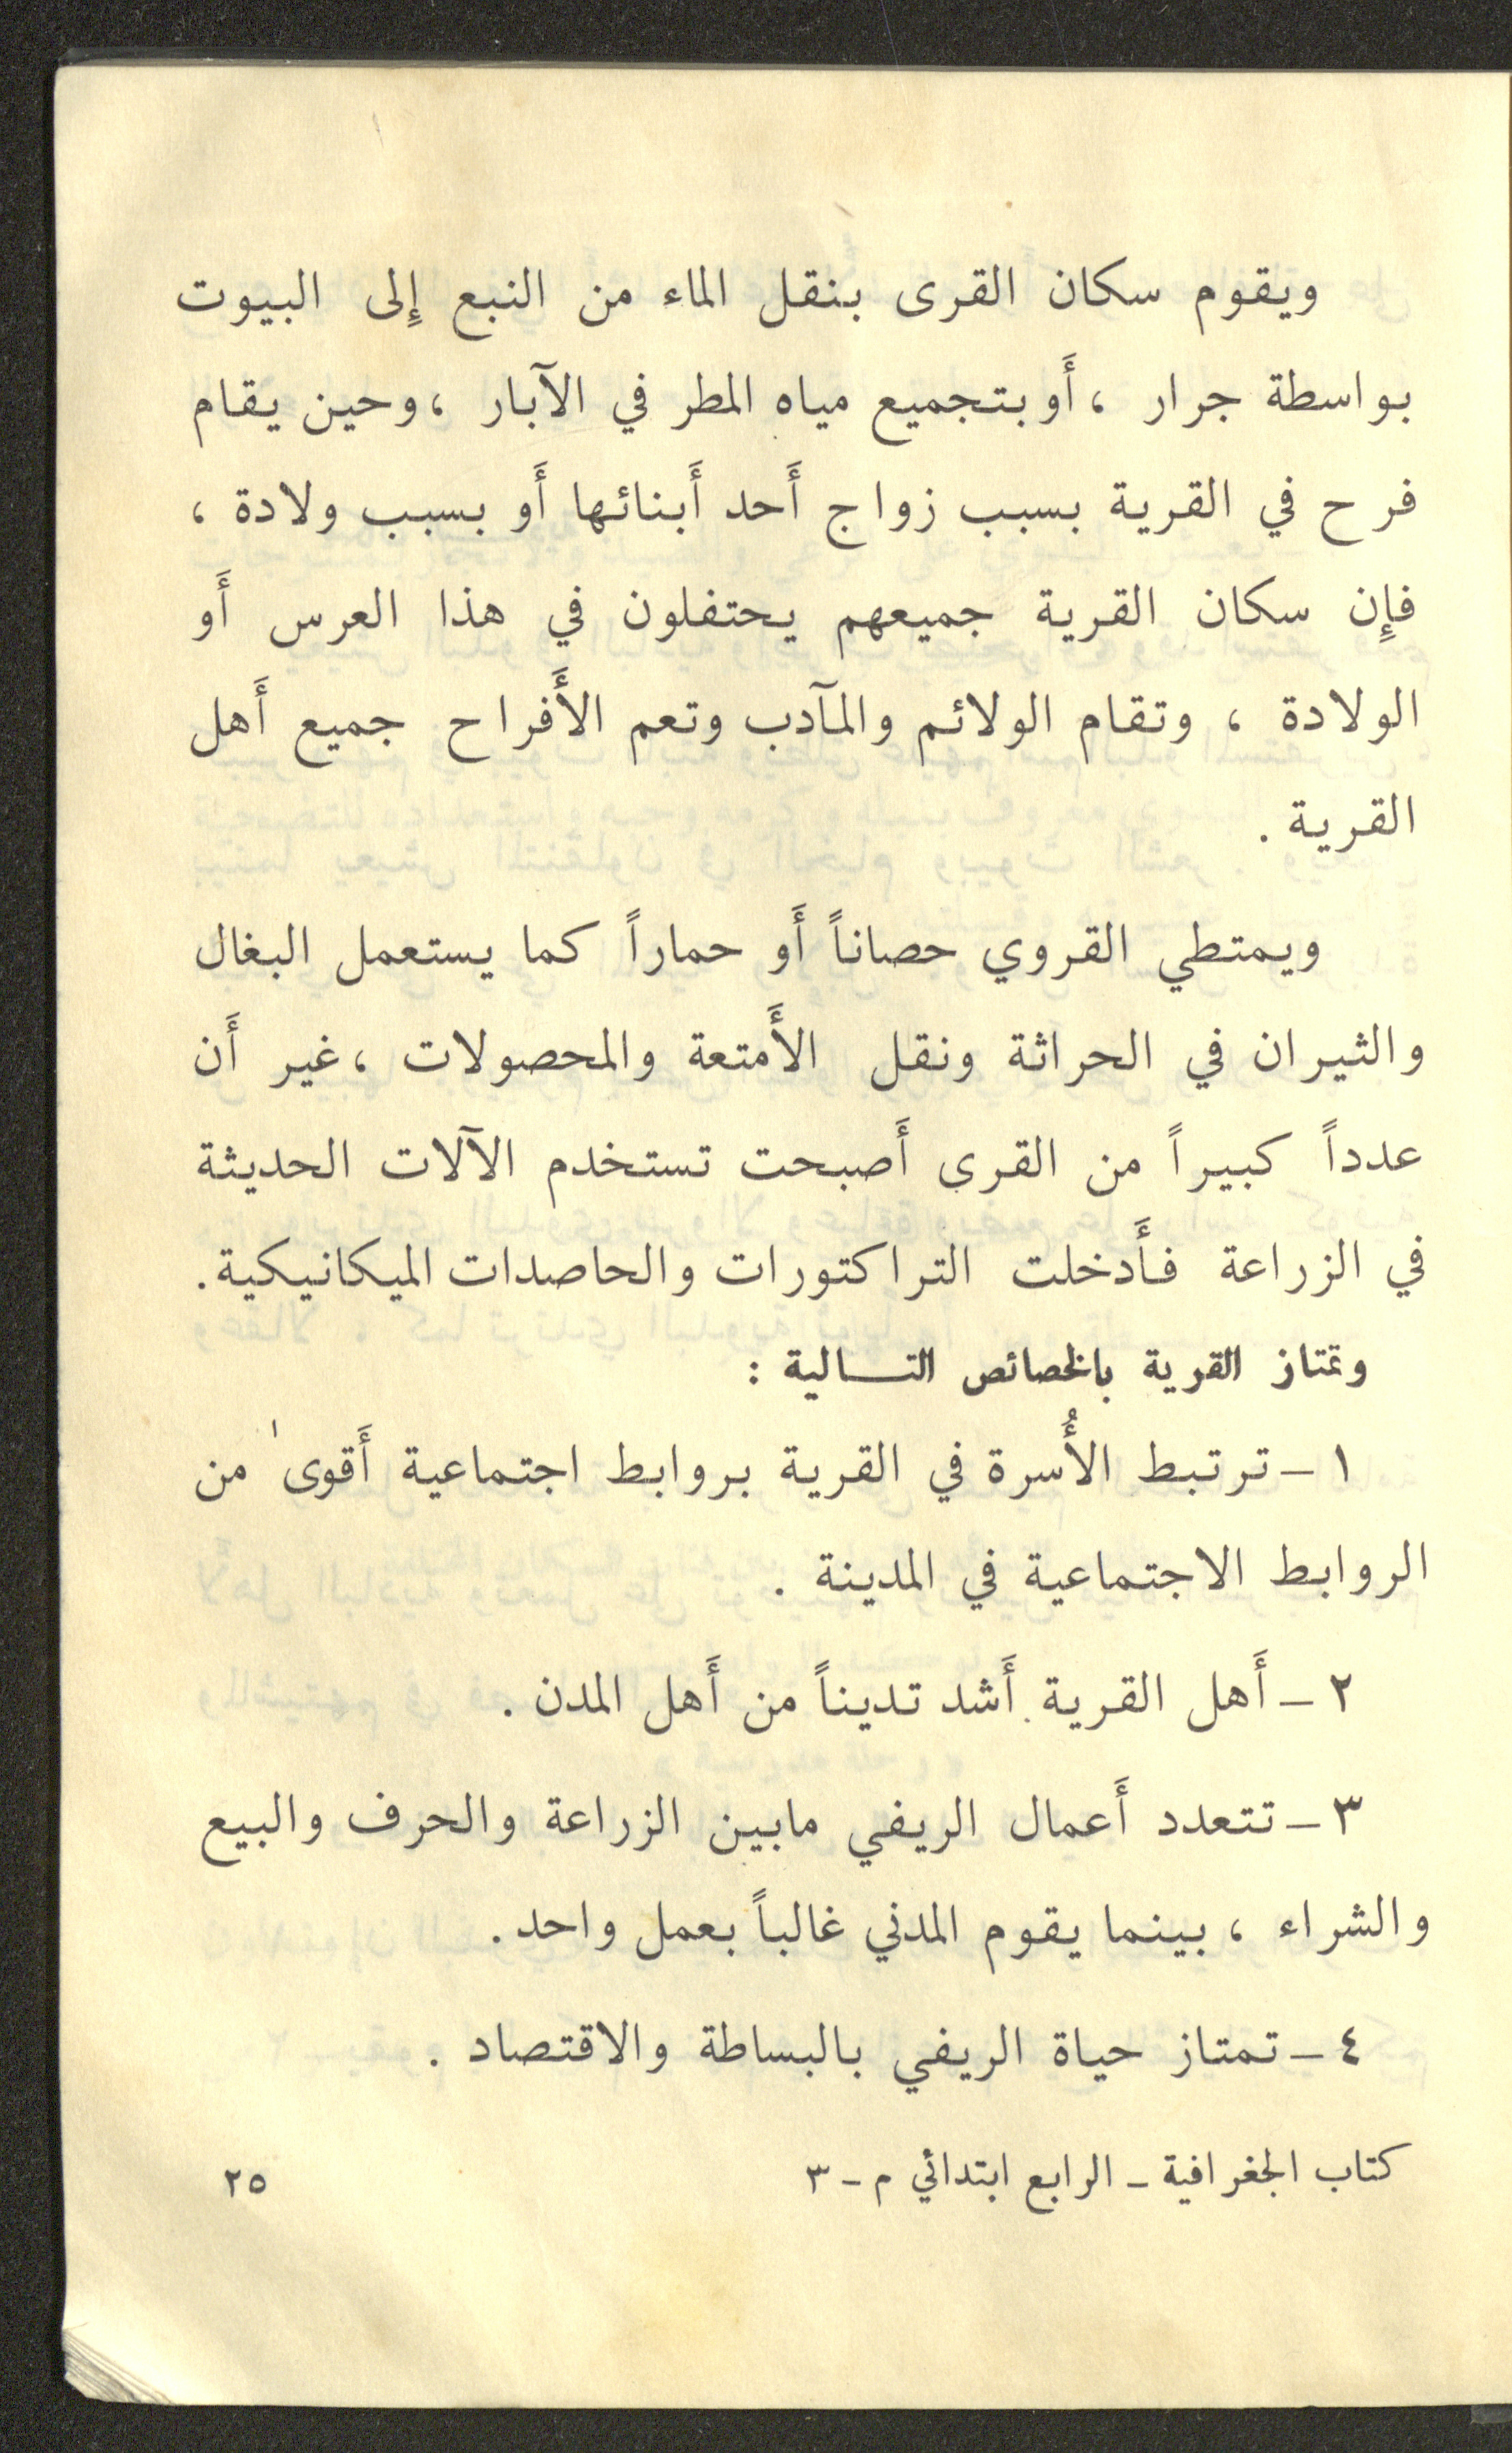 ويقوم سكان القرى بنقل الماء من النبع إِلى البيوت
بواسطة جرار ، أَو بتجميع مياه المطر في الآبار ، وحين يقام
فرح في القرية بسبب زواج أَحد أَبنائها أَو بسبب ولادة ،
فإِن سكان القرية جميعهم يحتفلون في هذا العرس أَو
الولادة ، وتقام الولائم والمآدب وتعم الأَفراح جميع أَهل
القرية .
ويمتطي القروي حصاناً أَو حماراً كما يستعمل البغال
والثيران في الحراثة ونقل الأَمتعة والمحصولات ، غير أَن
عدداً كبيراً من القرى أَصبحت تستخدم الآلات الحديثة
في الزراعة فأَدخلت التراكتورات والحاصدات الميكانيكية .
وتمتاز القرية بالخصائص التـــالية :
١ – ترتبط الأُسرة في القرية بروابط اجتماعية أَقوىٰ من
الروابط الاجتماعية في المدينة .
٢ – أَهل القرية أَشد تديناً من أَهل المدن .
٣ – تتعدد أَعمال الريفي مابين الزراعة والحرف والبيع
والشراء ، بينما يقوم المدني غالباً بعمل واحد .
٤ – تمتاز حياة الريفي بالبساطة والاقتصاد .
كتاب الجغرافية – الرابع ابتدائي م – ٣
٢٥